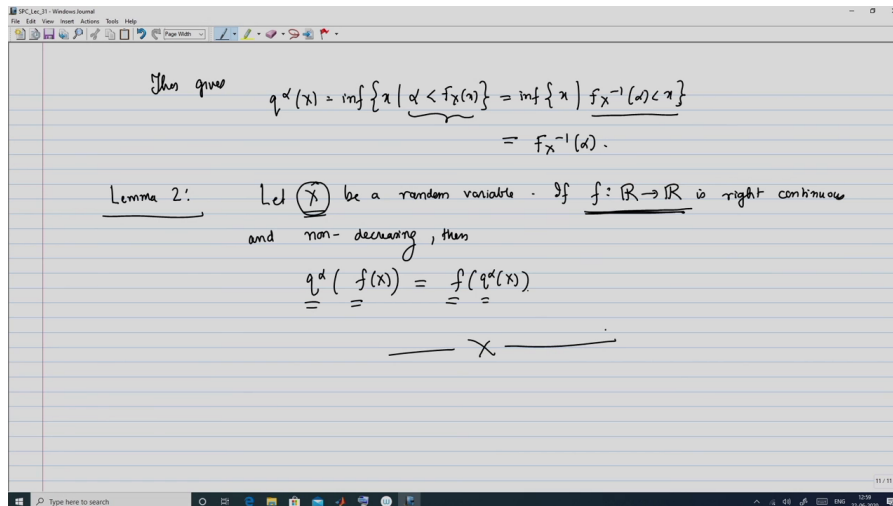 SPC_Lec_31 - Windows Journal
File Edit View Insert Actions Tools Help
Page Width
This gives q^α(X) = inf{x | α < F_X(x)} = inf{x | F_X^{-1}(α) < x}
= F_X^{-1}(α).
Lemma 2: Let X be a random variable. If f: ℝ → ℝ is right continuous
and non-decreasing, then
q^α(f(X)) = f(q^α(X)).
X
11 / 11
Type here to search
ENG
12:59